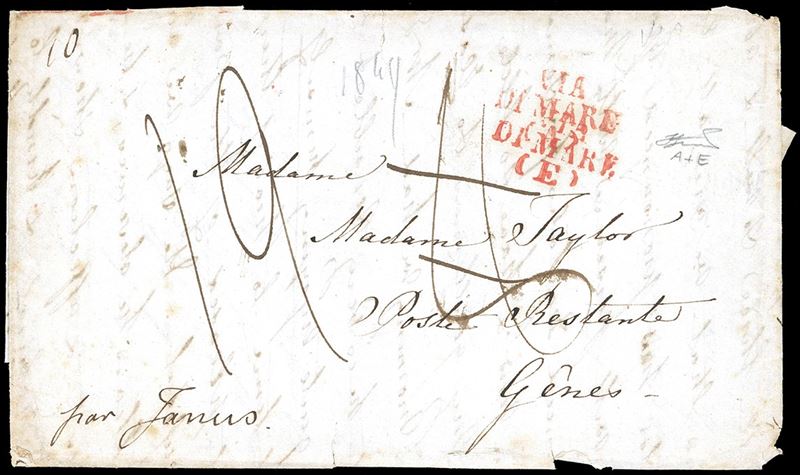 10
1844
VIA
DI MARE
DI MARE
(E)
A+E
19
Madame
Madame Taylor
Poste Restante
Gênes
par Janus.